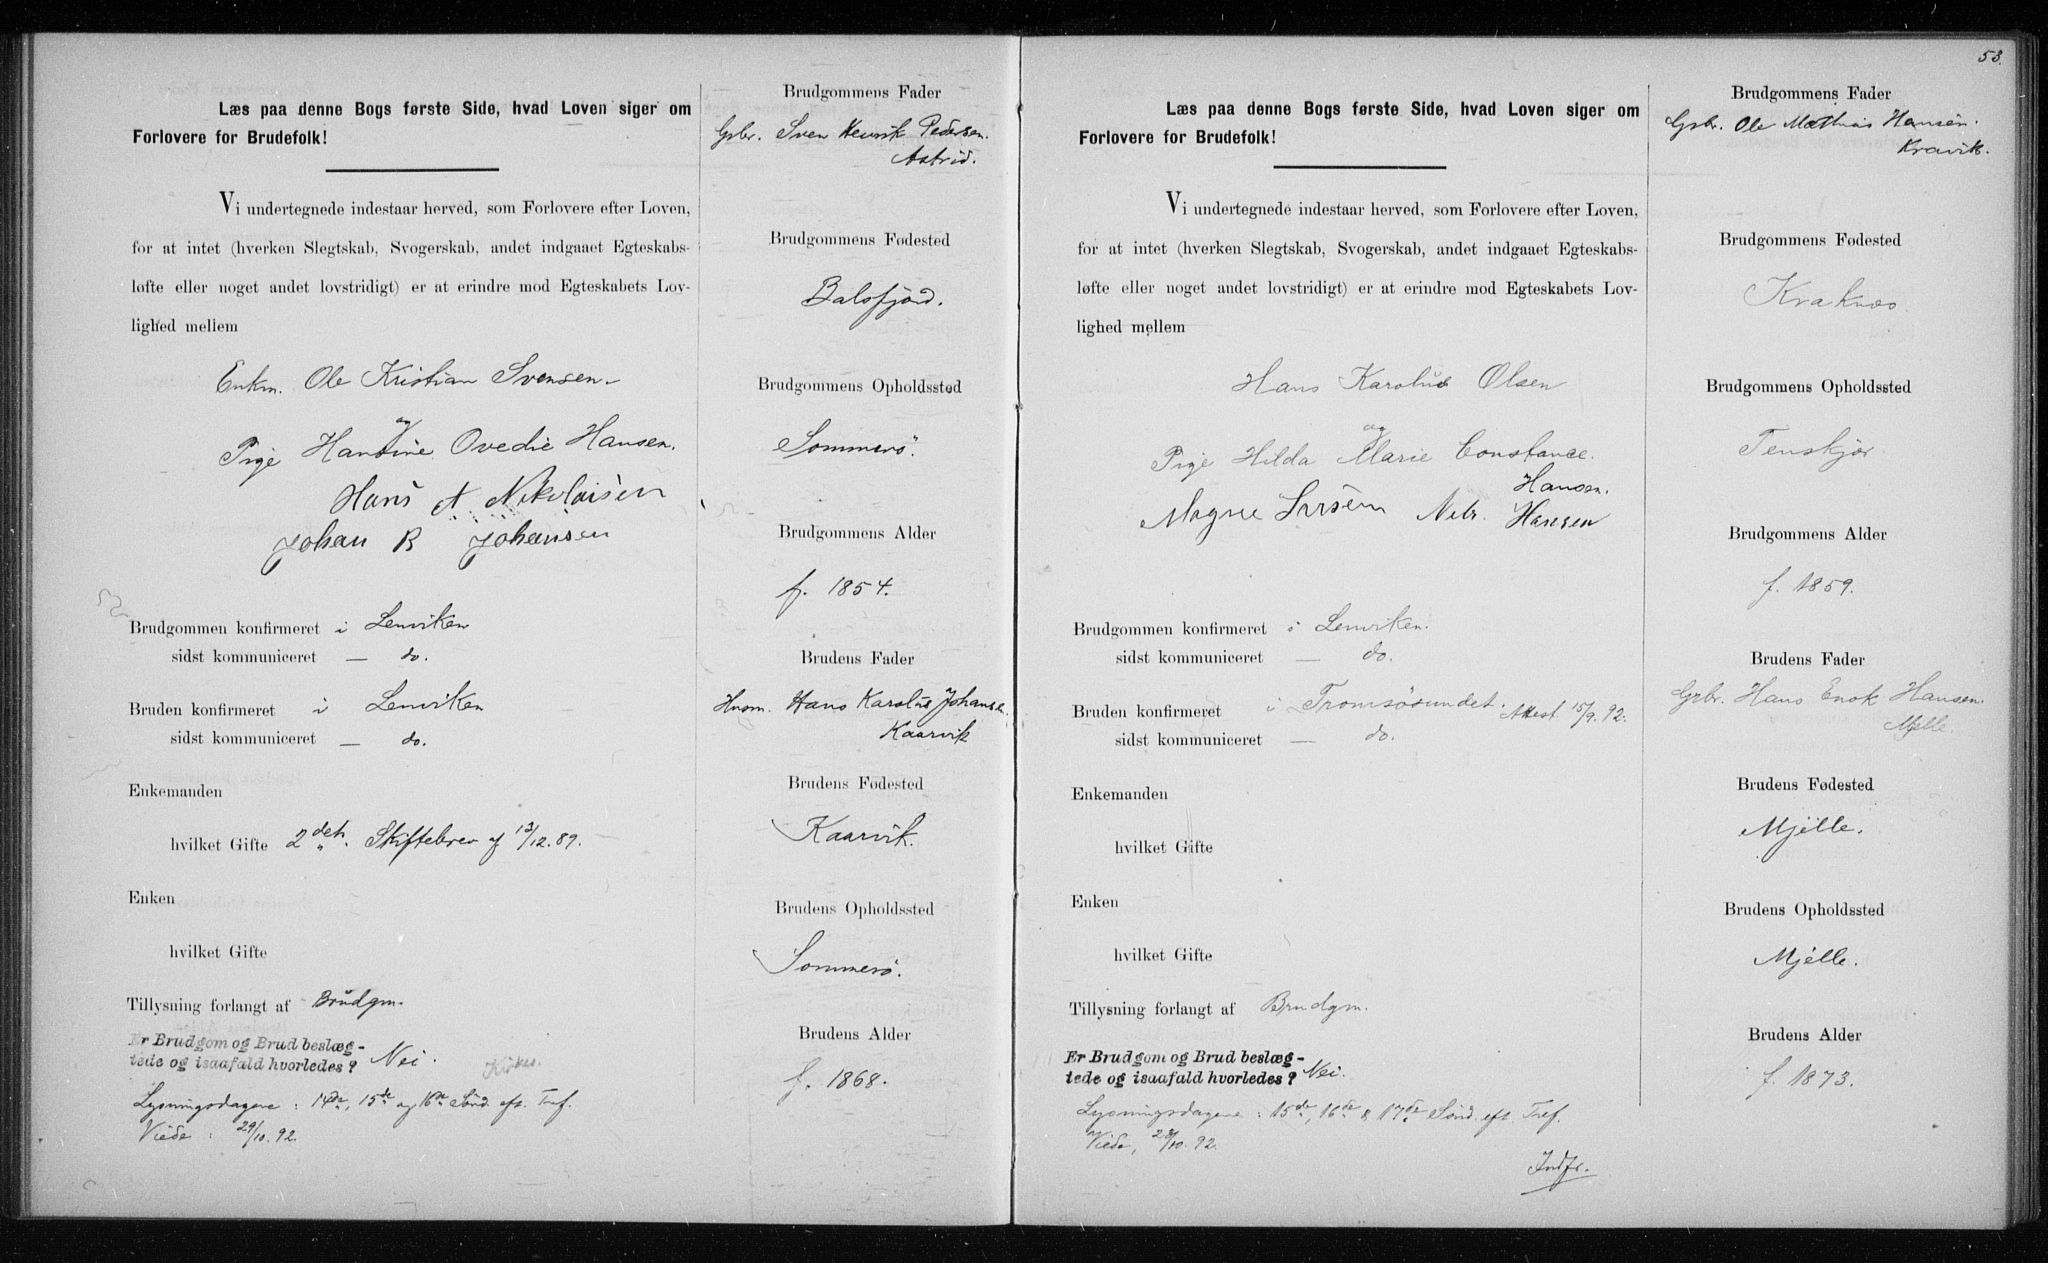 Læs paa denne Bogs første Side, hvad Loven siger om
Forlovere for Brudefolk!
Vi undertegnede indestaar herved, som Forlovere efter Loven,
for at intet (hverken Slegtskab, Svogerskab, andet indgaaet Egteskabs-
løfte eller noget andet lovstridigt) er at erindre mod Egteskabets Lov-
lighed mellem
Enkm. Ole Kristian Svensen
og
Pige Hantine Ovedie Hansen.
Hans A Nikolaisen
Johan B Johansen
Brudgommen konfirmeret i Lenviken
sidst kommuniceret — do.
Bruden konfirmeret i Lenviken
sidst kommuniceret — do.
Enkemanden
hvilket Gifte 2det. Skiftebrev af 12/12.89.
Enken
hvilket Gifte
Tillysning forlangt af Brudgm.
Er Brudgom og Brud beslæg-
tede og isaafald hvorledes? Nei.
Lysningsdagene: 14de, 15de og 16de Sönd. eft. Tref.
Viede: 29/10.92.
Brudgommens Fader
Gbr. Sven Henrik Pedersen.
Astrid.
Brudgommens Fødested
Balsfjord.
Brudgommens Opholdssted
Sommerö.
Brudgommens Alder
f. 1854.
Brudens Fader
Husm. Hans Karolus Johansen.
Kaarvik
Brudens Fødested
Kaarvik.
Brudens Opholdssted
Sommerö.
Brudens Alder
f. 1868.
53.
Læs paa denne Bogs første Side, hvad Loven siger om
Forlovere for Brudefolk!
Vi undertegnede indestaar herved, som Forlovere efter Loven,
for at intet (hverken Slegtskab, Svogerskab, andet indgaaet Egteskabs-
løfte eller noget andet lovstridigt) er at erindre mod Egteskabets Lov-
lighed mellem
Hans Karolus Olsen
og
Pige Hilda Marie Constance
Hansen.
Magne Larsen Hansen
Brudgommen konfirmeret i Lenviken.
sidst kommuniceret — do.
Bruden konfirmeret i Tromsösundet. Attest 15/9.92.
sidst kommuniceret — do.
Enkemanden
hvilket Gifte
Enken
hvilket Gifte
Tillysning forlangt af Brudgm.
Er Brudgom og Brud beslæg-
tede og isaafald hvorledes? Nei.
Lysningsdagene: 15de, 16de & 17de Sönd. eft. Tref.
Viede, 23/10.92.
Indf.
Brudgommens Fader
Gbr. Ole Mathias Hansen.
Kravik.
Brudgommens Fødested
Kraknes
Brudgommens Opholdssted
Tenskjör
Brudgommens Alder
f. 1859.
Brudens Fader
Gbr. Hans Enok Hansen.
Mjelle.
Brudens Fødested
Mjelle.
Brudens Opholdssted
Mjelle.
Brudens Alder
f. 1873.